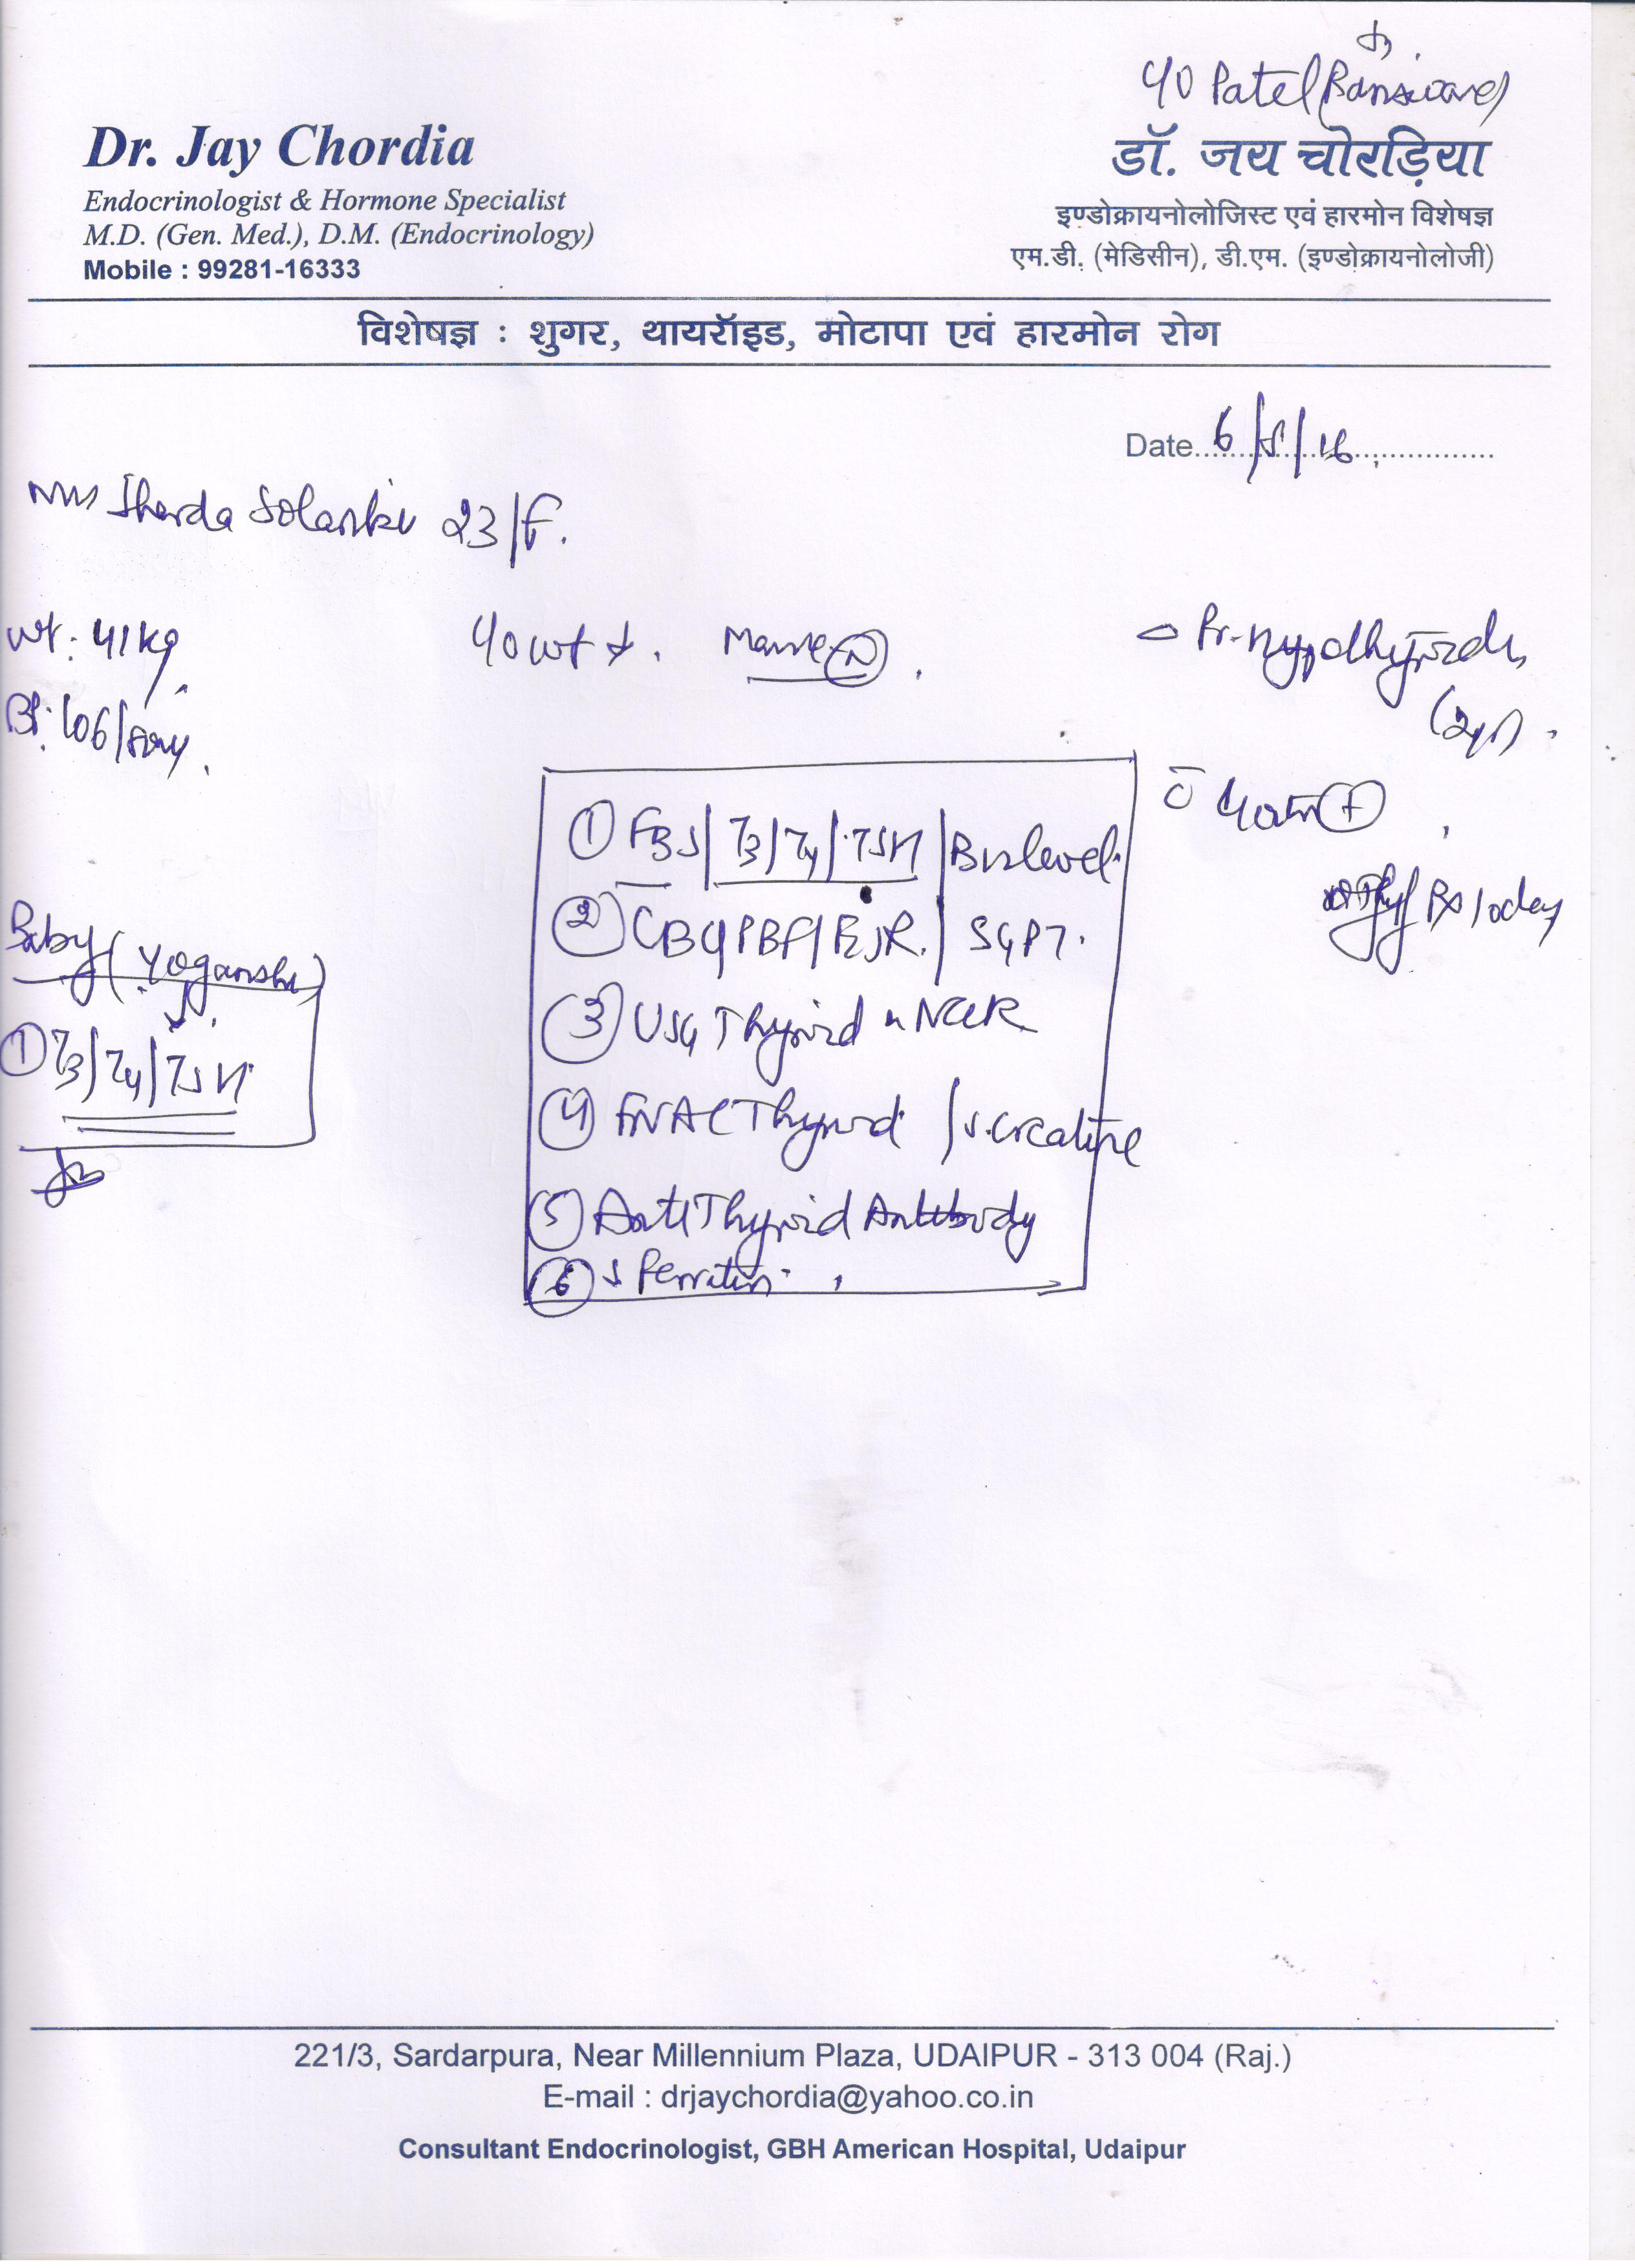 Patel (Banswara)
Dr. Jay Chordia
डॉ. जय चोरड़िया
Endocrinologist & Hormone Specialist
इण्डोक्रायनोलोजिस्ट एवं हारमोन विशेषज्ञ
M.D. (Gen. Med.), D.M. (Endocrinology)
एम.डी. (मेडिसीन), डी.एम. (इण्डोक्रायनोलोजी)
Mobile : 99281-16333
विशेषज्ञ : शुगर, थायरॉइड, मोटापा एवं हारमोन रोग
Date 6/5/16
Sharda Solanki 23/F.
wt: 41 kg
wt ↓. (N)
BP: 106/
① FBS/T3/T4/TSH/B12 level.
② CBC/PBF/ESR./SGPT.
③ USG Thyroid
④ FNAC Thyroid /S. Creatine
⑤ Anti Thyroid Antibody
⑥ S Ferritin.
Rx today
Baby (Yoganshi)
① T3/T4/TSH
221/3, Sardarpura, Near Millennium Plaza, UDAIPUR - 313 004 (Raj.)
E-mail : drjaychordia@yahoo.co.in
Consultant Endocrinologist, GBH American Hospital, Udaipur